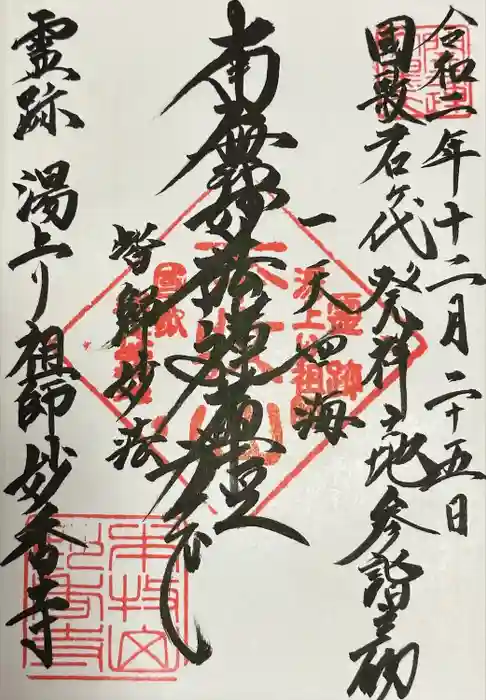 令和二年十二月二十五日
国歌君が代発祥之地参詣之砌
一天四海
南無妙法蓮華経
皆帰妙法
霊跡 湯上り祖師妙香寺
霊跡
湯上り祖
国歌